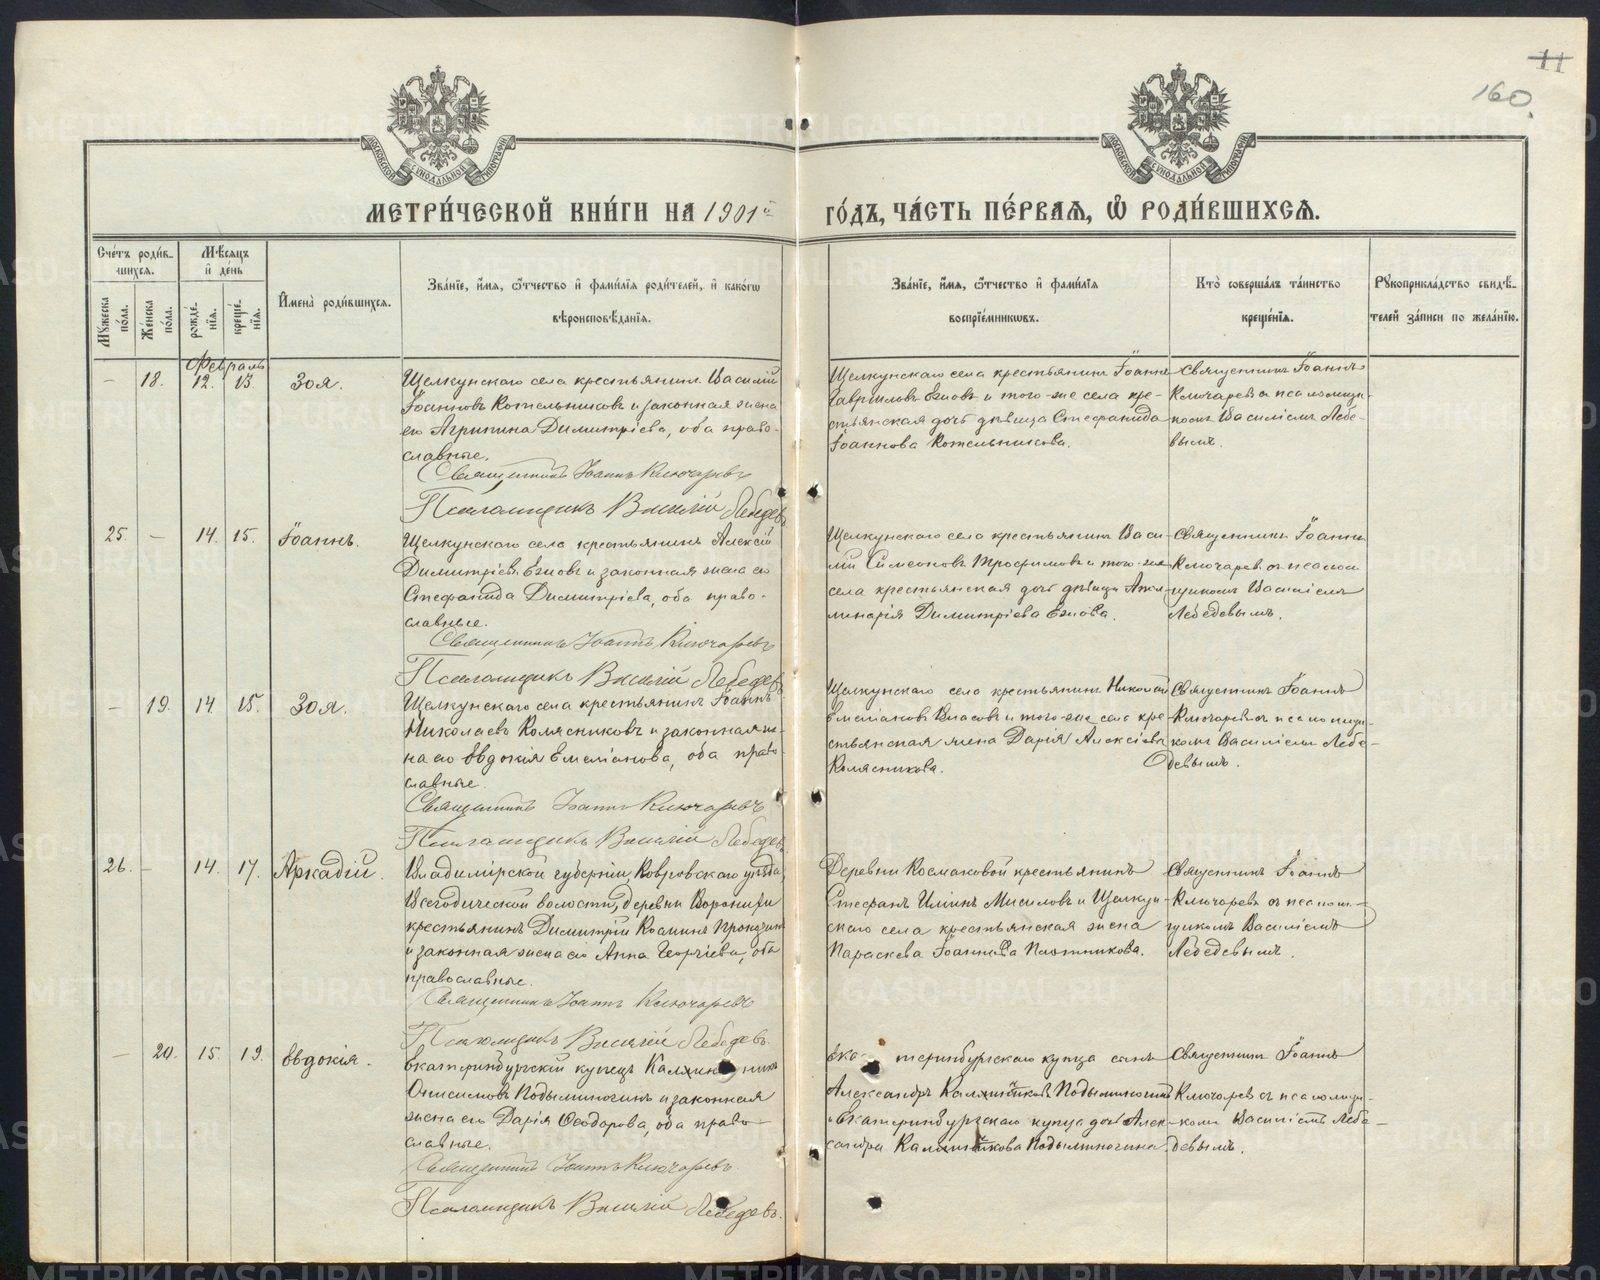 11
160
МОСКОВСКОЙ СѴНОДАЛЬНОЙ ТИПОГРАФІИ
МОСКОВСКОЙ СѴНОДАЛЬНОЙ ТИПОГРАФІИ
МЕТРИ́ЧЕСКОЙ КНИ́ГИ НА 1901й ГО́ДЪ, ЧА́СТЬ ПЕ́РВАЯ, Ѡ҆ РОДИ́ВШИХСЯ.
Сче́тъ роди́в-
шихся.
Мѣ́сяцъ
и҆ де́нь
Мꙋ́жеска по́ла.
Же́нска по́ла.
рожде́-
нїя.
креще́-
нїя.
И҆мена̀ роди́вшихся.
Зва́нїе, и҆́мя, ѻ҆́тчество и҆ фами́лїя роди́телей, и҆ како́гѡ
вѣроисповѣ́данїя.
Зва́нїе, и҆́мя, ѻ҆́тчество и҆ фами́лїя
воспрїе́мникѡвъ.
Кто̀ соверша́лъ та́инство
креще́нїя.
Рꙋкоприкла́дство свидѣ́-
телей за́писи по жела́нїю.
Февраль
– 18. 12. 13. Зоя.
Щелкунскаго села крестьянинъ Василій
Іоанновъ Котельниковъ и законная жена
его Агрипина Димитріева, оба право-
славные.
Священникъ Іоаннъ Ключаревъ
Псаломщикъ Василій Лебедевъ
Щелкунскаго села крестьянинъ Іоаннъ
Гавриловъ Езиовъ и того-же села кре-
стьянская дочь дѣвица Стефанида
Іоаннова Котельникова.
Священникъ Іоаннъ
Ключаревъ съ псаломщи-
комъ Василіемъ Лебе-
вымъ.
25. – 14. 15. Іоаннъ.
Щелкунскаго села крестьянинъ Алексій
Димитріевъ Езиовъ и законная жена его
Стефанида Димитріева, оба право-
славные.
Священникъ Іоаннъ Ключаревъ
Псаломщикъ Василій Лебедевъ
Щелкунскаго села крестьянинъ Васи-
лій Симеоновъ Трофимовъ и того-же
села крестьянская дочь дѣвица Апол-
линарія Димитріева Езиова.
Священникъ Іоаннъ
Ключаревъ съ псалом-
щикомъ Василіемъ
Лебедевымъ.
– 19. 14. 15. Зоя.
Щелкунскаго села крестьянинъ Іоаннъ
Николаевъ Колясниковъ и законная же-
на его Евдокія Емеліанова, оба право-
славные.
Священникъ Іоаннъ Ключаревъ
Псаломщикъ Василій Лебедевъ
Щелкунскаго села крестьянинъ Николай
Емеліановъ Власовъ и того-же села кре-
стьянская жена Дарія Алексіева
Колясникова.
Священникъ Іоаннъ
Ключаревъ съ псаломщи-
комъ Василіемъ Лебе-
девымъ.
26. – 14. 17. Аркадій.
Владимірской губерніи, Ковровскаго уѣзда,
Всегодической волости, деревни Воронихи
крестьянинъ Димитрій Козминъ
и законная жена его Анна Георгіева, оба
православные.
Священникъ Іоаннъ Ключаревъ
Псаломщикъ Василій Лебедевъ.
Деревни Космаковой крестьянинъ
Стефанъ Ильинъ Мисиловъ и Щелкун-
скаго села крестьянская жена
Параскева Іоаннова Плотникова.
Священникъ Іоаннъ
Ключаревъ съ псалом-
щикомъ Василіемъ
Лебедевымъ.
– 20. 15. 19. Евдокія.
Екатеринбургскій купецъ Калинникъ
Онисимовъ Подымногинъ и законная
жена его Дарія Ѳеодорова, оба право-
славные.
Священникъ Іоаннъ Ключаревъ
Псаломщикъ Василій Лебедевъ.
Екатеринбургскаго купца сынъ
Александръ Калинниковъ Подымногинъ
и Екатеринбургскаго купца дочь Алек-
сандра Калинникова Подымногина.
Священникъ Іоаннъ
Ключаревъ съ псаломщи-
комъ Василіемъ Лебе-
девымъ.
METRIKI.GASO-URAL.RU